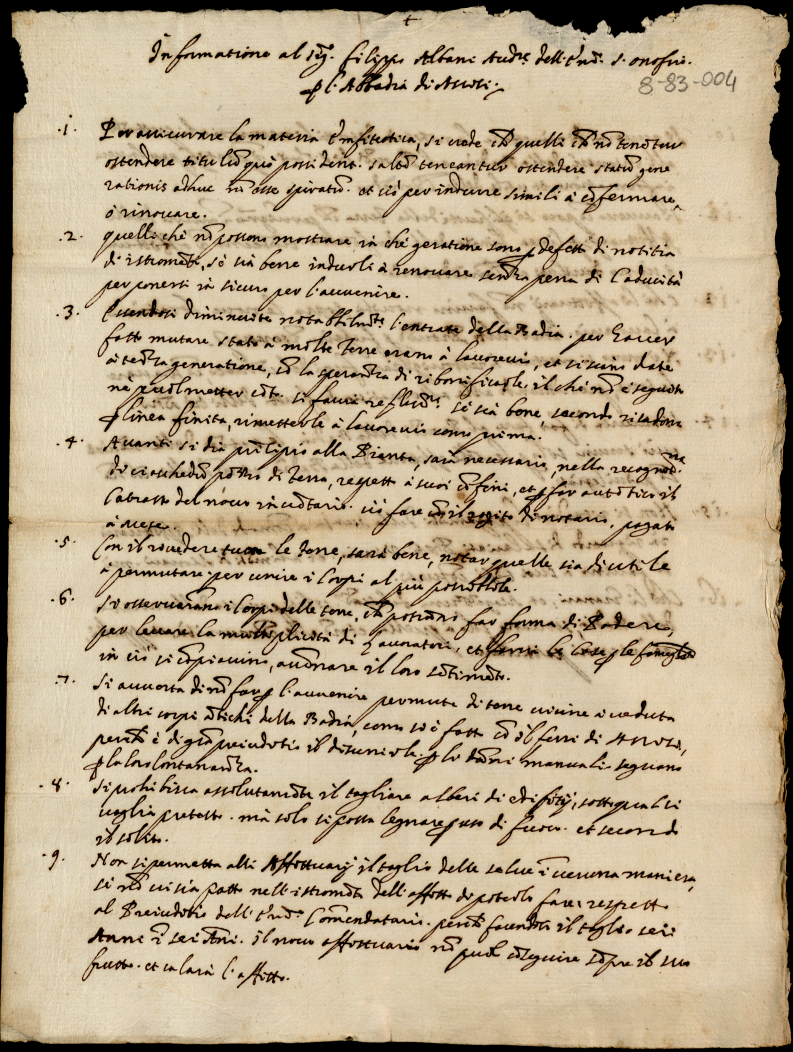 +
Informatione al Sig. Filippo Albani Aud.re dell'Em̃o. S. onofrio.
p l'Abbadia di
8-83-004
.1. Per assicurare la materia Emfiteotica, si crede ch̃ quelli ch̃ nõ tenõtur
ostendere titulũ quo possident. saltẽ teneantur ostendere statũ gene
rationis adhuc nõ esse spiratũ. et ciò per indurre simili à cõfermare,
ò rinovare.
.2. quelli che nõ possono mostrare in che geratione sono p defetto di notitia
di istromẽti, se sia bene indurli à renovare senza pena di Caducità
per ponersi in sicuro per l'avvenire.
.3. Essendosi diminuite notabilmẽte l'entrate della Badia. per haver
fatto mutare stato à molte terre erano à lavorecio, et si sono date
à terza generatione, cõ la speranza di ribonificarle. il che nõ è seguito
ne puol metter cõto. si facci reflessione se sia bene, secondo ricadono
p linea finita, rimetterle à lavorecio come prima.
.4. Avanti si dia principio alla Pianta, sarà necessario, nella recognitione
di ciaschedũ pezzo di terra, rispetto à suoi cõfini, et p far autẽtico il
Catasto del novo inventario. ciò fare cõ il rogito di notario, pagato
à mese.
.5. Con il rivedere tutte le terre, sarà bene, notar quelle sia di utile
à permutare per unire i Corpi al più possibile.
.6. Si osservaranno i Corpi delle terre, ch̃ possino far forma di Podere,
per levare la multiplicità di Lavoratori, et le Case p le famiglie
in ciò si compiaccino, accennare il loro sẽtimẽto.
.7. Si avverta di nõ far p l'avvenire permute di terre vicine à veduta
di altri corpi ãtichi della Badia, come si è fatto cõ il ferri di
perche è di grã preiuditio il disunirle. p li danni manuali seguono
p la loro lontananza.
.8. Si prohibisca assolutamẽte il tagliare alberi di edifitij, sotto qualsi
voglia pretesto. mà solo si possa legnare p uso di fuoco. et secondo
il solito.
.9. Non si permetta alli Affittuarij il taglio delle selve ĩ veruna maniera,
se nõ vi sia patto nell'istromẽto dell'affitto di poterlo fare. rispetto
al Preiuditio dell'Em̃o. Commendatario. perche facendosi il taglio sei
Anni ĩ sei Anni. il novo affittuario nõ puol cõseguire sẽpre il suo
frutto. et calarà l'affitto.